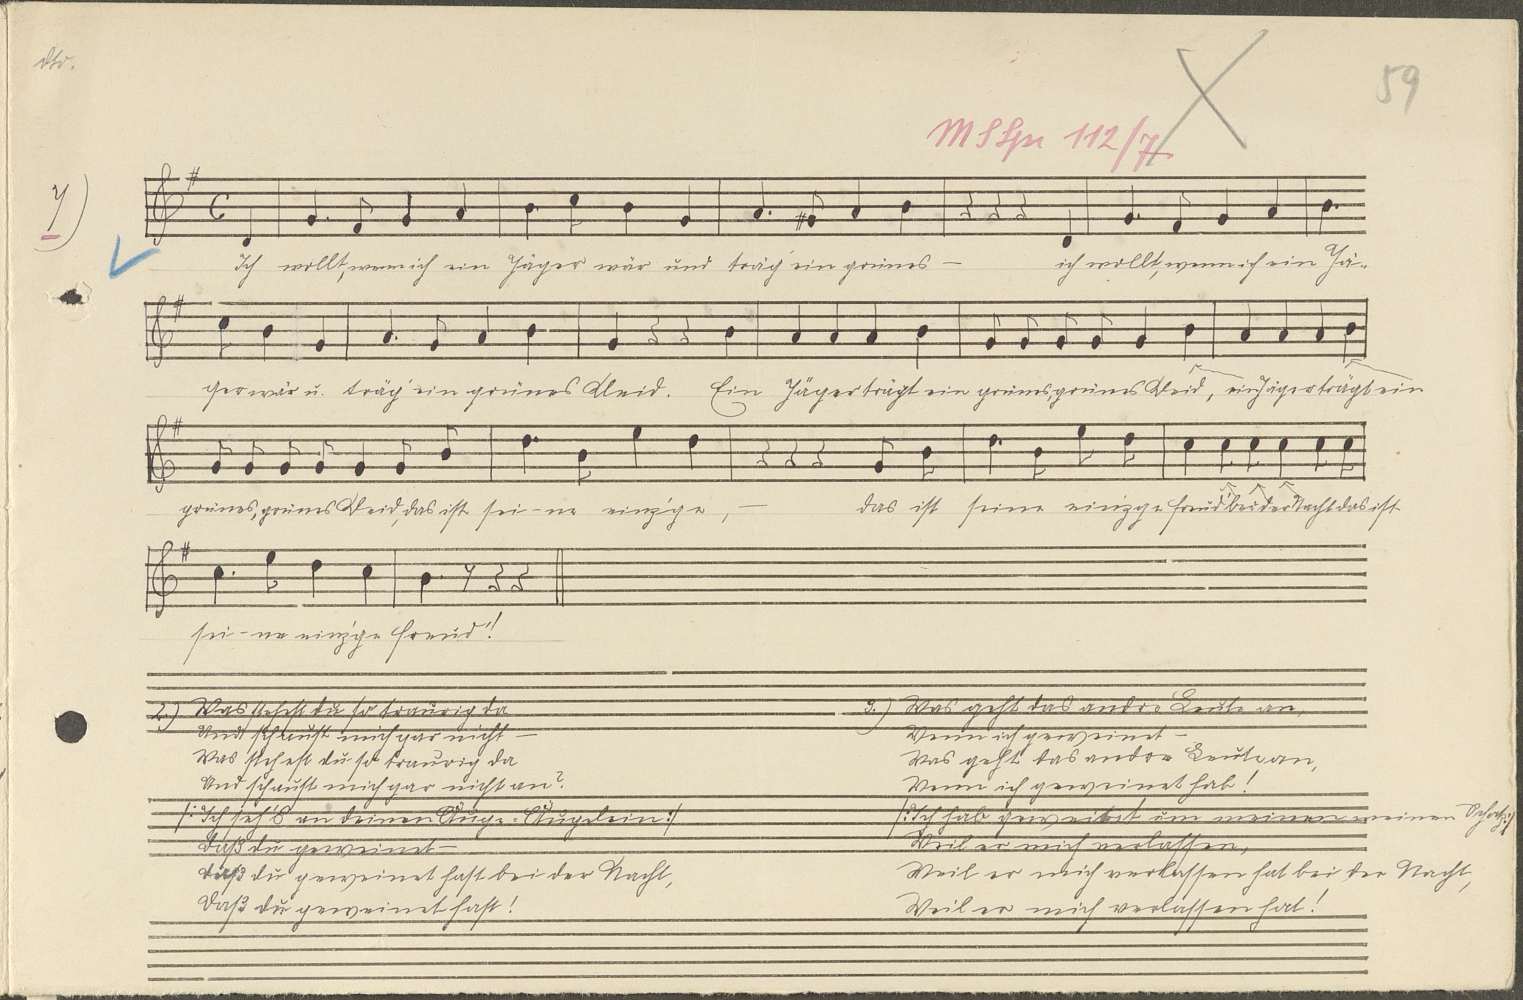 dto.
59
MSSpr 112/7
7)
Ich wollt, wenn ich ein Jäger wär und träg' ein grünes – ich wollt, wenn ich ein Jä-
ger wär u. träg' ein grünes Kleid. Ein Jäger trägt ein grünes, grünes Kleid, ein Jäger trägt ein
grünes, grünes Kleid, das ist sei-ne einz'ge, – das ist seine einzge Freud' bei der Nacht das ist
sei-ne einz'ge Freud'!
2.) Was stehst du so traurig da
Und schaust mich gar nicht –
Was stehest du so traurig da
Und schaust mich gar nicht an?
/: Ich seh's an deinen Auge-Äugelein :/
Daß du geweinet –
Daß du geweinet hast bei der Nacht,
Daß du geweinet hast!
3.) Was geht das andre Leute an,
Wenn ich geweinet –
Was geht das andre Leute an,
Wenn ich geweinet hab!
/: Ich hab geweinet um meinen meinen Schatz :/
Weil er mich verlassen,
Weil er mich verlassen hat bei der Nacht,
Weil er mich verlassen hat!